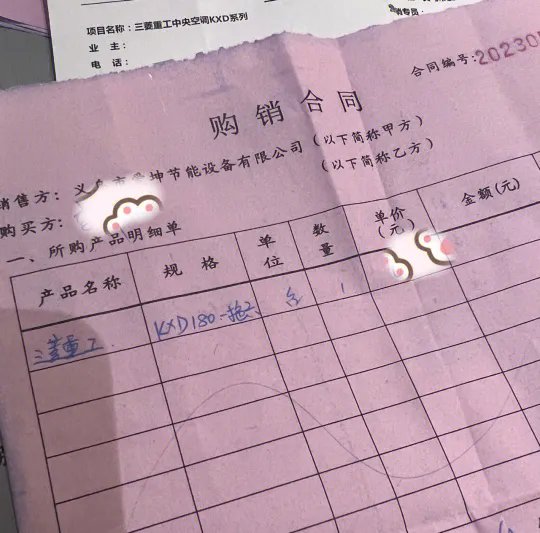 项目名称：三菱重工中央空调KXD系列
业 主：
电 话：
销售员：
合同编号：20230
购销合同
销售方：义 坤节能设备有限公司（以下简称甲方）
购买方： （以下简称乙方）
一、所购产品明细单
产品名称 规格 单位 数量 单价（元） 金额(元)
三菱重工 KXD180 台 1